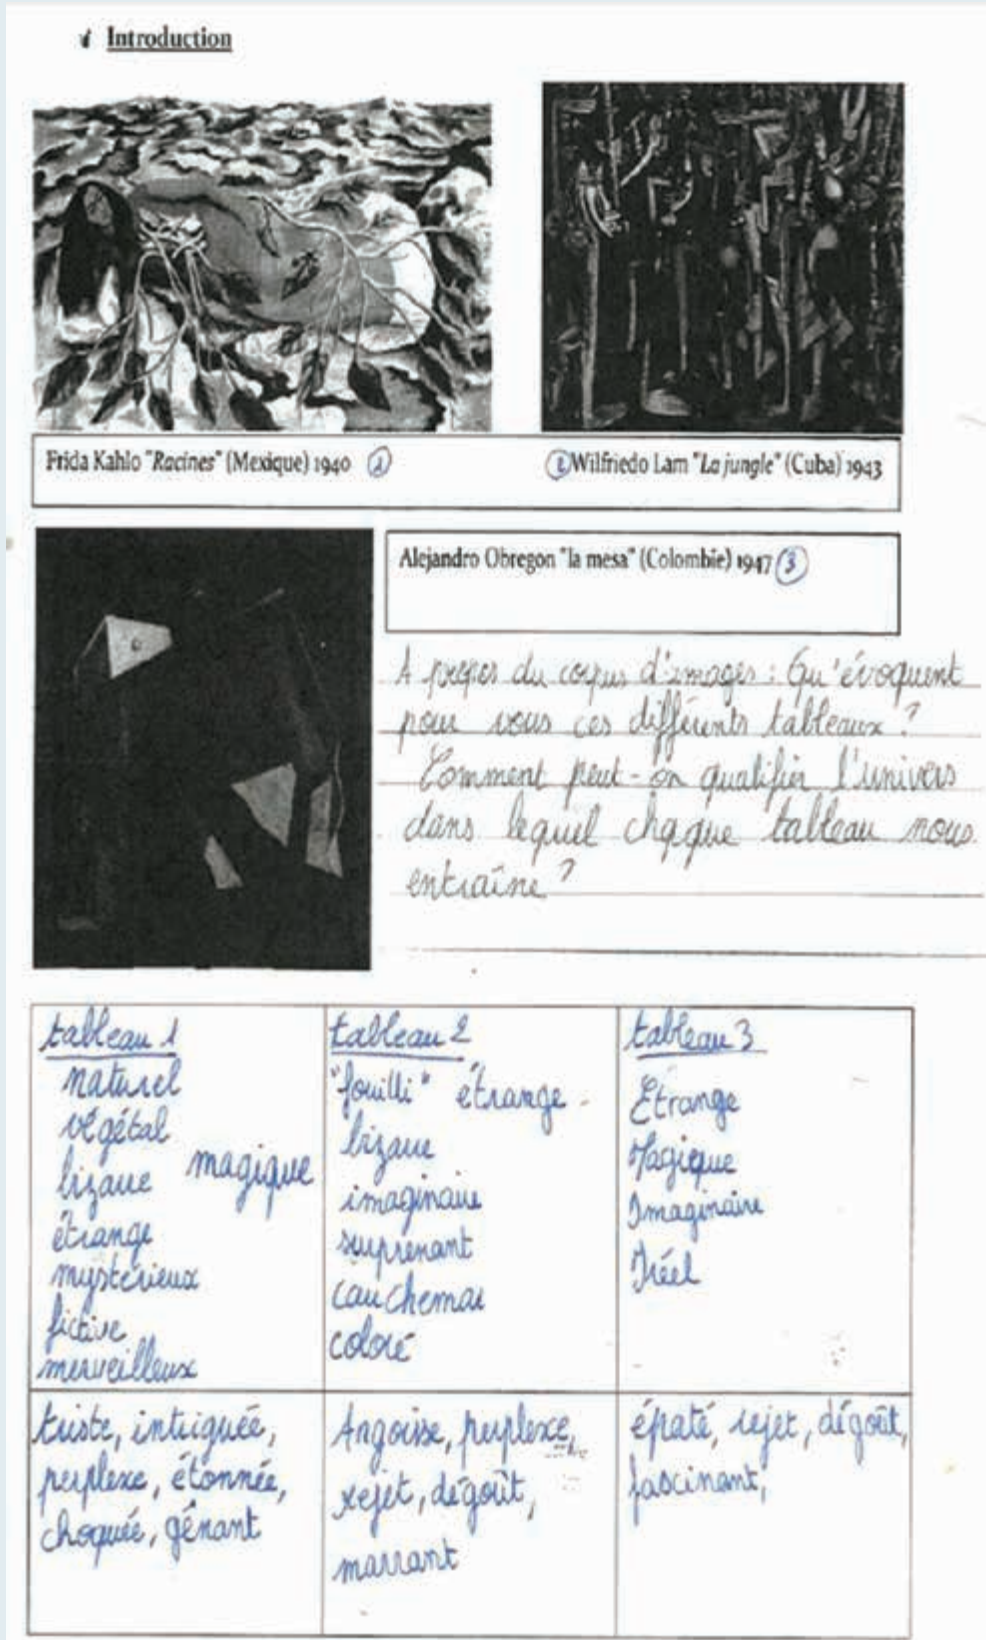 Introduction
Frida Kahlo "Racines" (Mexique) 1940 1
2 Wilfriedo Lam "La jungle" (Cuba) 1943
Alejandro Obregon "la mesa" (Colombie) 1947 3
A propos du corpus d'images : Qu'évoquent
pour vous ces différents tableaux ?
Comment peut-on qualifier l'univers
dans lequel chaque tableau nous
entraîne ?
tableau 1
naturel
végétal
bizarre magique
étrange
mystérieux
fictive
merveilleux
tableau 2
"fouilli" étrange
bizarre
imaginaire
surprenant
cauchemar
coloré
tableau 3
Étrange
Magique
Imaginaire
Iréel
triste, intriguée,
perplexe, étonnée,
choquée, gênant
Angoisse, perplexe,
rejet, dégoût,
marrant
épaté, rejet, dégoût,
fascinant,